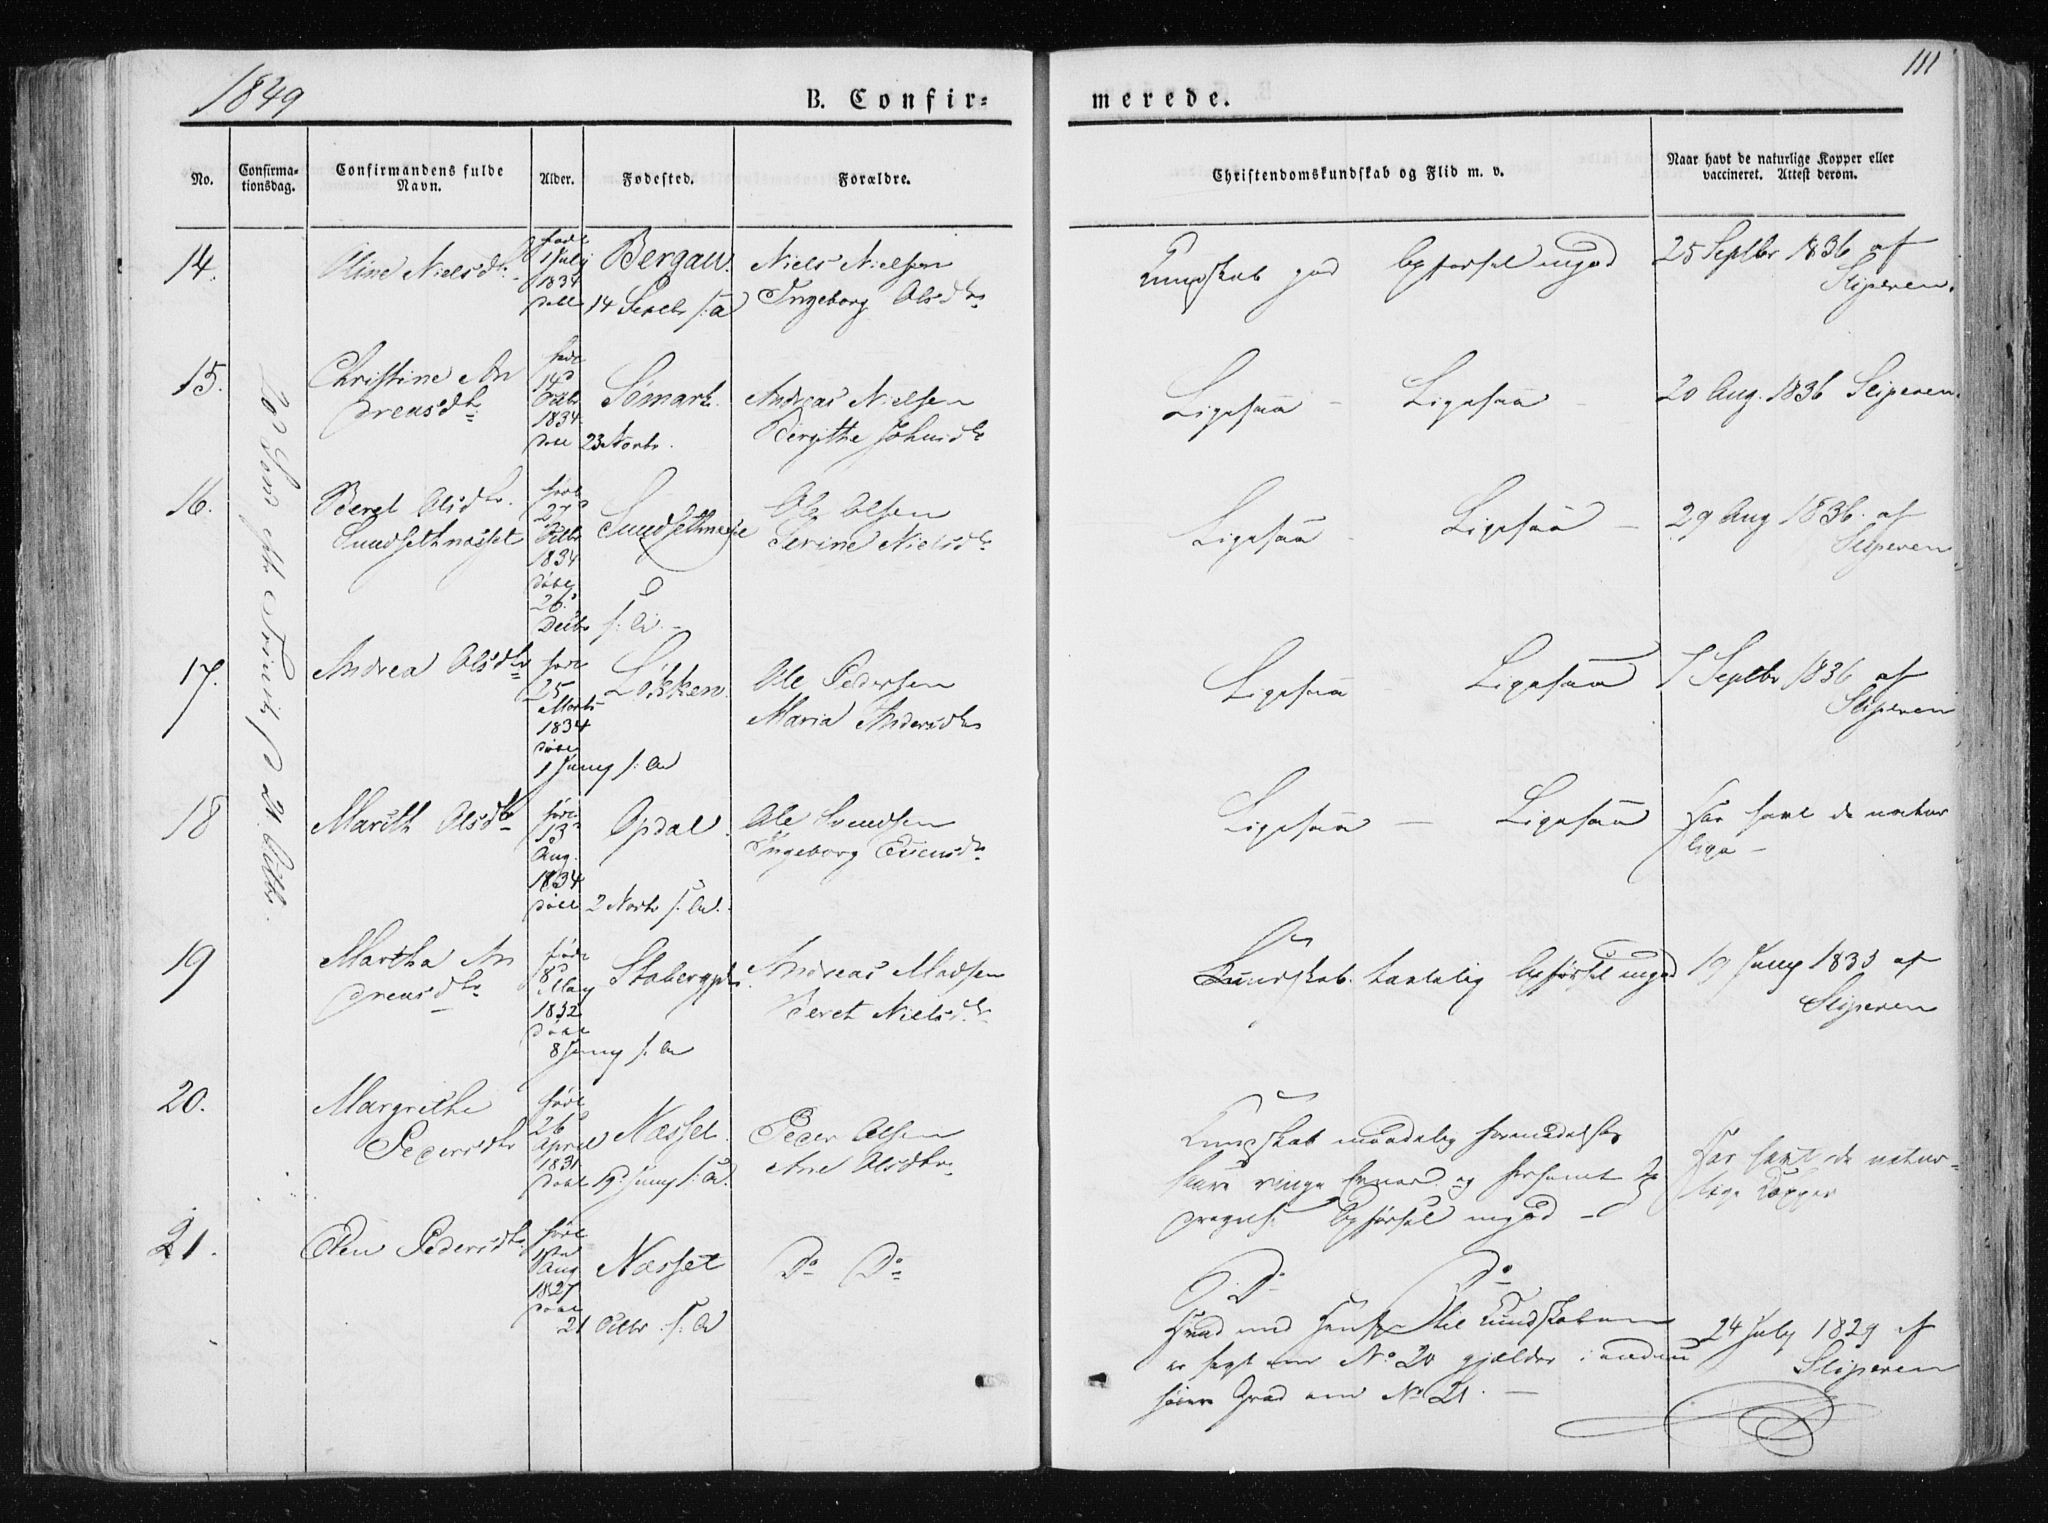 1849
B. Confir-
merede.
111
No.
Confirma-
tionsdag.
Confirmandens fulde
Navn.
Alder.
Fødested.
Forældre.
Christendomskundskab og Flid m. v.
Naar havt de naturlige Kopper eller
vaccineret. Attest derom.
14.
Oline Nielsdtr
født
1 July
1834
døbt 14
Bergau.
Niels Nielsen
Ingeborg Olsdtr
Kundskab god Opførsel ngod
25 Septbr 1836 af
Slipern.
15.
Christine An
dreasdtr
født
14d
Octbr
1834
døbt 23 Novbr.
Sømark.
Andreas Nielsen
Bergithe Johnsdtr
Ligesaa - Ligesaa -
20 Aug. 1836 Sliperen
16.
Beret Olsdtr.
Sundsethnæsset
født
27d
Octbr
1834
døbt
26d
Decbr s: A.
Ole Olsen
Serine Nielsdtr
Ligesaa - Ligesaa -
29 Aug 1836. af
Sliperen
17.
Andrea Olsdtr
født
25
Marts
1834
døbt
1 Juny s: A
Løkken.
Ole Pedersen
Maria Andersdtr
Ligesaa Ligesaa
7 Septbr 1836 af
Sliperen
18
Marith Olsdtr
født
13d
Aug.
1834
døbt 2 Novbr s: A.
Opdal
Ole Svendsen
Ingeborg Evensdtr
Ligesaa - Ligesaa
Har havt de natur
lige -
19
Martha An
dreasdtr
født
8d
May
1832
døbt
8 Juny s: A
Andreas Madsen
Beret Nielsdtr
Kundskab taalelig Opførsel ngod
19 Juny 1833 af
Sliperen
20.
Margrethe
Pedersdtr
født
26d
April
1831
døbt 19 Juny s: A.
Næsset
Peder Olsen
Ane Olsdtr
Kundskab maadelig formedelst
ringe Evner og forsømt
Opførsel ngod -
Har havt de natur-
lige Kopper
21.
Elen Pedersdtr
født
Aug
1827
døbt
21 Octbr s: A
Næsset
Do Do
Do Do
Hvad med Hensyn til Kundskaben
er sagt om No 20 gjælder i endnu
høiere Grad om No 21. -
24 July 1829 af
Sliperen
20d Sønd. eftr Trinit. d. 21. Octbr.